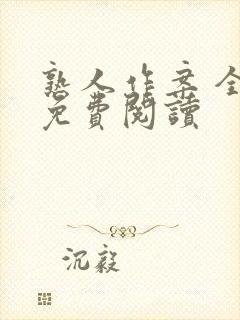 熟人作案全
免費閱讀
沉毅